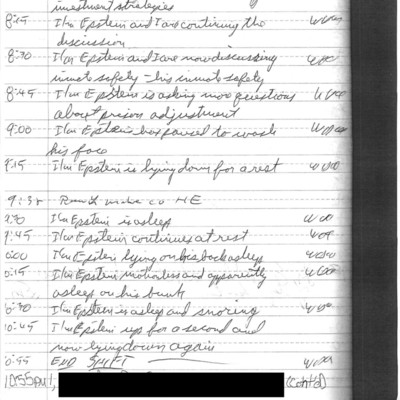 investment strategies
8:15 I/m Epstein and I are continuing the
discussion
8:30 I/m Epstein and I are now discussing
inmate safety - his inmate safety
8:45 I/m Epstein is asking more questions
about prison adjustment
9:00 I/m Epstein has paused to wash
his face
9:15 I/m Epstein is lying down for a rest
9:38 Round made co
9:30 I/m Epstein is asleep
9:45 I/m Epstein continues at rest
0:00 I/m Epstein lying on his back asleep
0:15 I/m Epstein motionless and apparently
asleep on his bunk
0:30 I/m Epstein is asleep and snoring
10:45 I/m Epstein up for a second and
now lying down again
0:55 END SHIFT
10:55PM, (Cont'd)